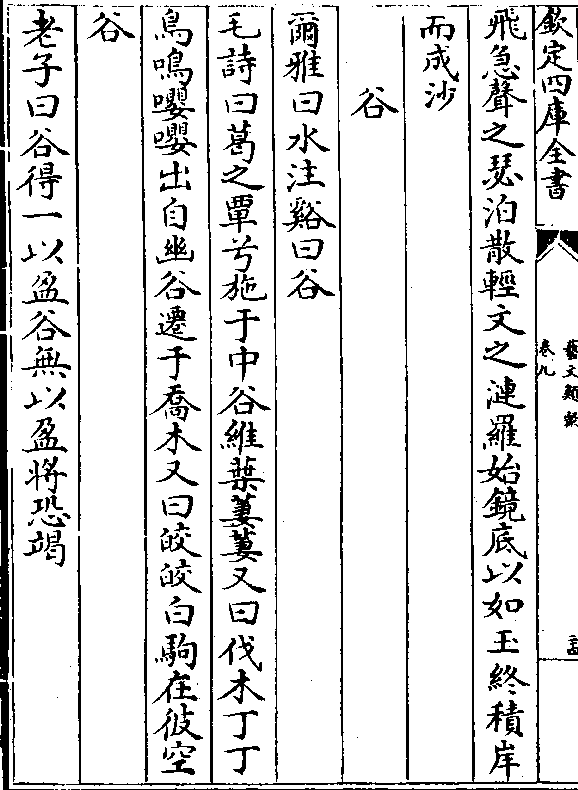 欽定四庫全書
藝文類聚
卷九
飛急聲之瑟泊散輕文之漣羅始鏡底以如玉終積岸
而成沙
谷
爾雅曰水注谿曰谷
毛詩曰葛之覃兮施于中谷維葉萋萋又曰伐木丁丁
鳥鳴嚶嚶出自幽谷遷于喬木又曰皎皎白駒在彼空
谷
老子曰谷得一以盈谷無以盈將恐竭